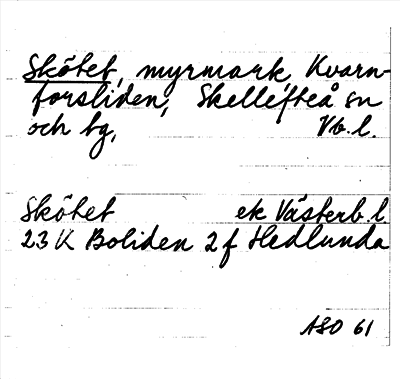 Skötet, myrmark, Kvarn-
forsliden, Skellefteå sn
och tg, Vb. l.
Skötet ek Västerb. l
23 K Boliden 2 f Hedlunda
ASO 61